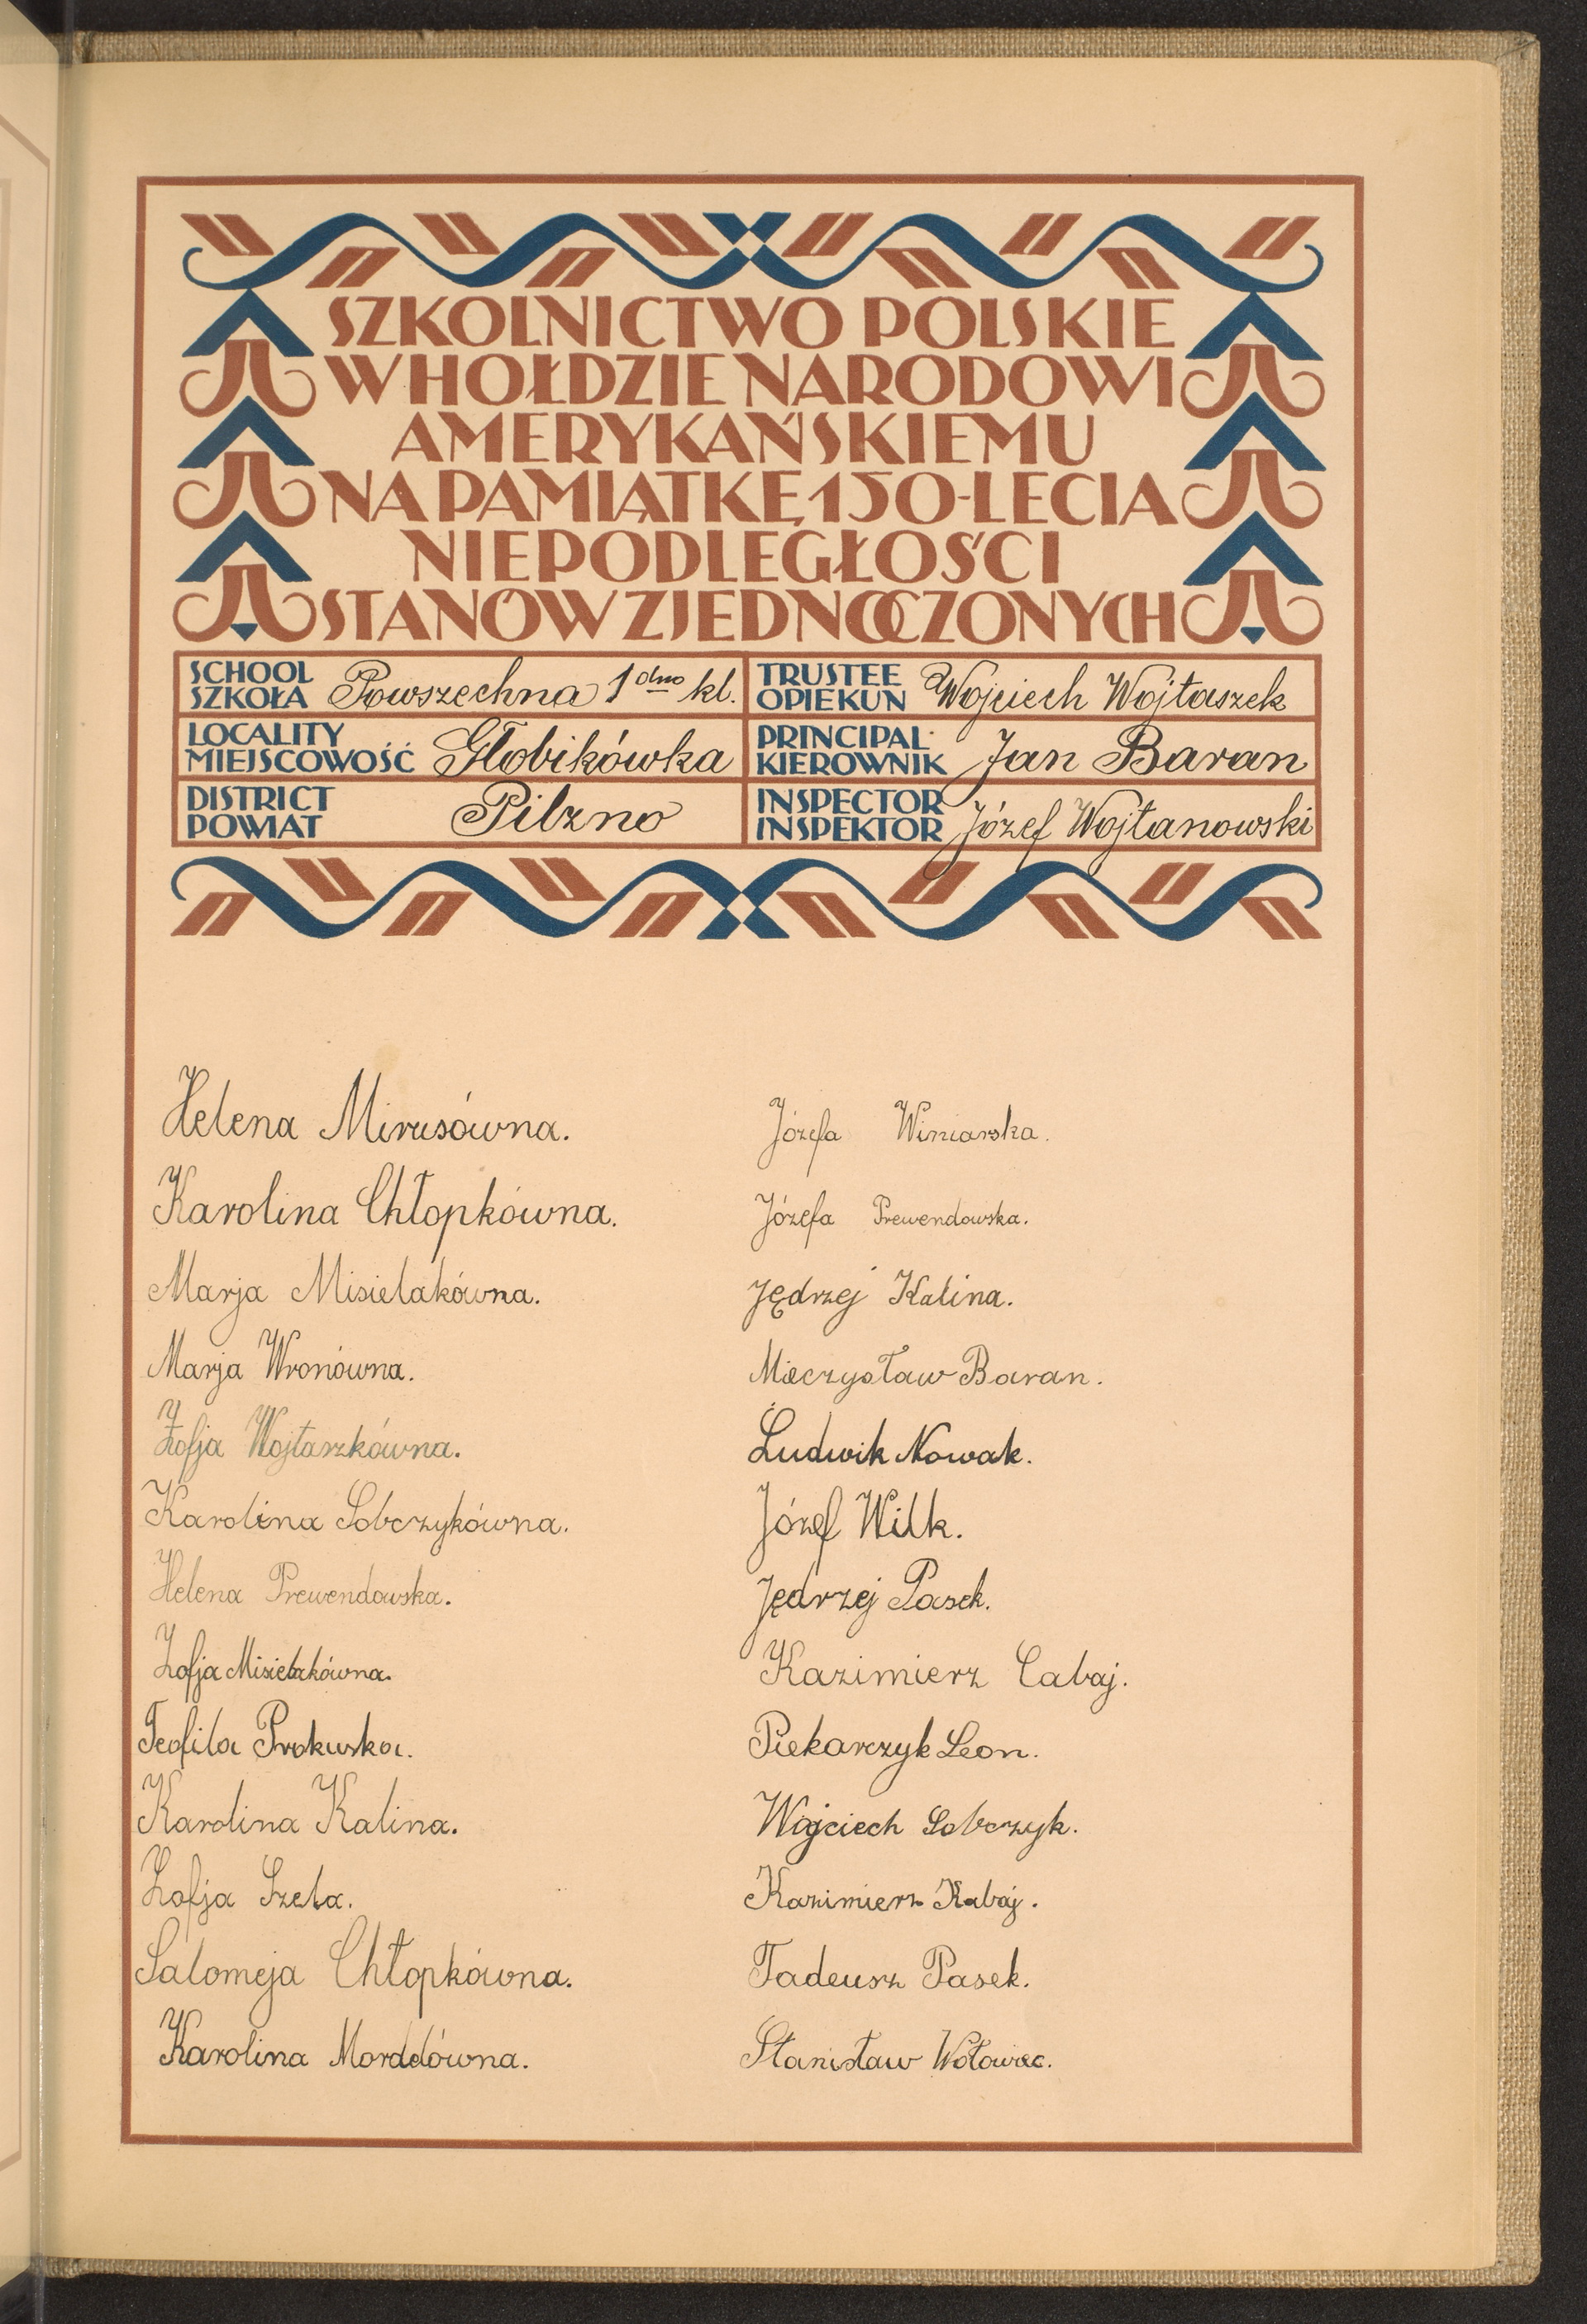 SZKOLNICTWO POLSKIE
W HOŁDZIE NARODOWI
AMERYKAŃSKIEMU
NA PAMIĄTKĘ 150-LECIA
NIEPODLEGŁOŚCI
STANÓW ZJEDNOCZONYCH
SCHOOL
SZKOŁA Powszechna 1dno kl.
TRUSTEE
OPIEKUN Wojciech Wojtaszek
LOCALITY
MIEJSCOWOŚĆ Głobikówka
PRINCIPAL
KIEROWNIK Jan Baran
DISTRICT
POWIAT Pilzno
INSPECTOR
INSPEKTOR Józef Wojtanowski
Helena Mirusówna.
Karolina Chłopkówna.
Marja Misielakówna.
Marja Wronówna.
Zofja Wojtaszkówna.
Karolina Sobczykówna.
Helena Prewendowska.
Zofja Misielakówna.
Teofila Prokuska.
Karolina Kalina.
Zofja Szela.
Salomeja Chłopkówna.
Karolina Mordelówna.
Józefa Winiarska.
Józefa Prewendowska.
Jędrzej Kalina.
Mieczysław Baran.
Ludwik Nowak.
Józef Wilk.
Jędrzej Pasek.
Kazimierz Cabaj.
Piekarczyk Leon.
Wojciech Sobczyk.
Kazimierz Kabaj.
Tadeusz Pasek.
Stanisław Wołowiec.